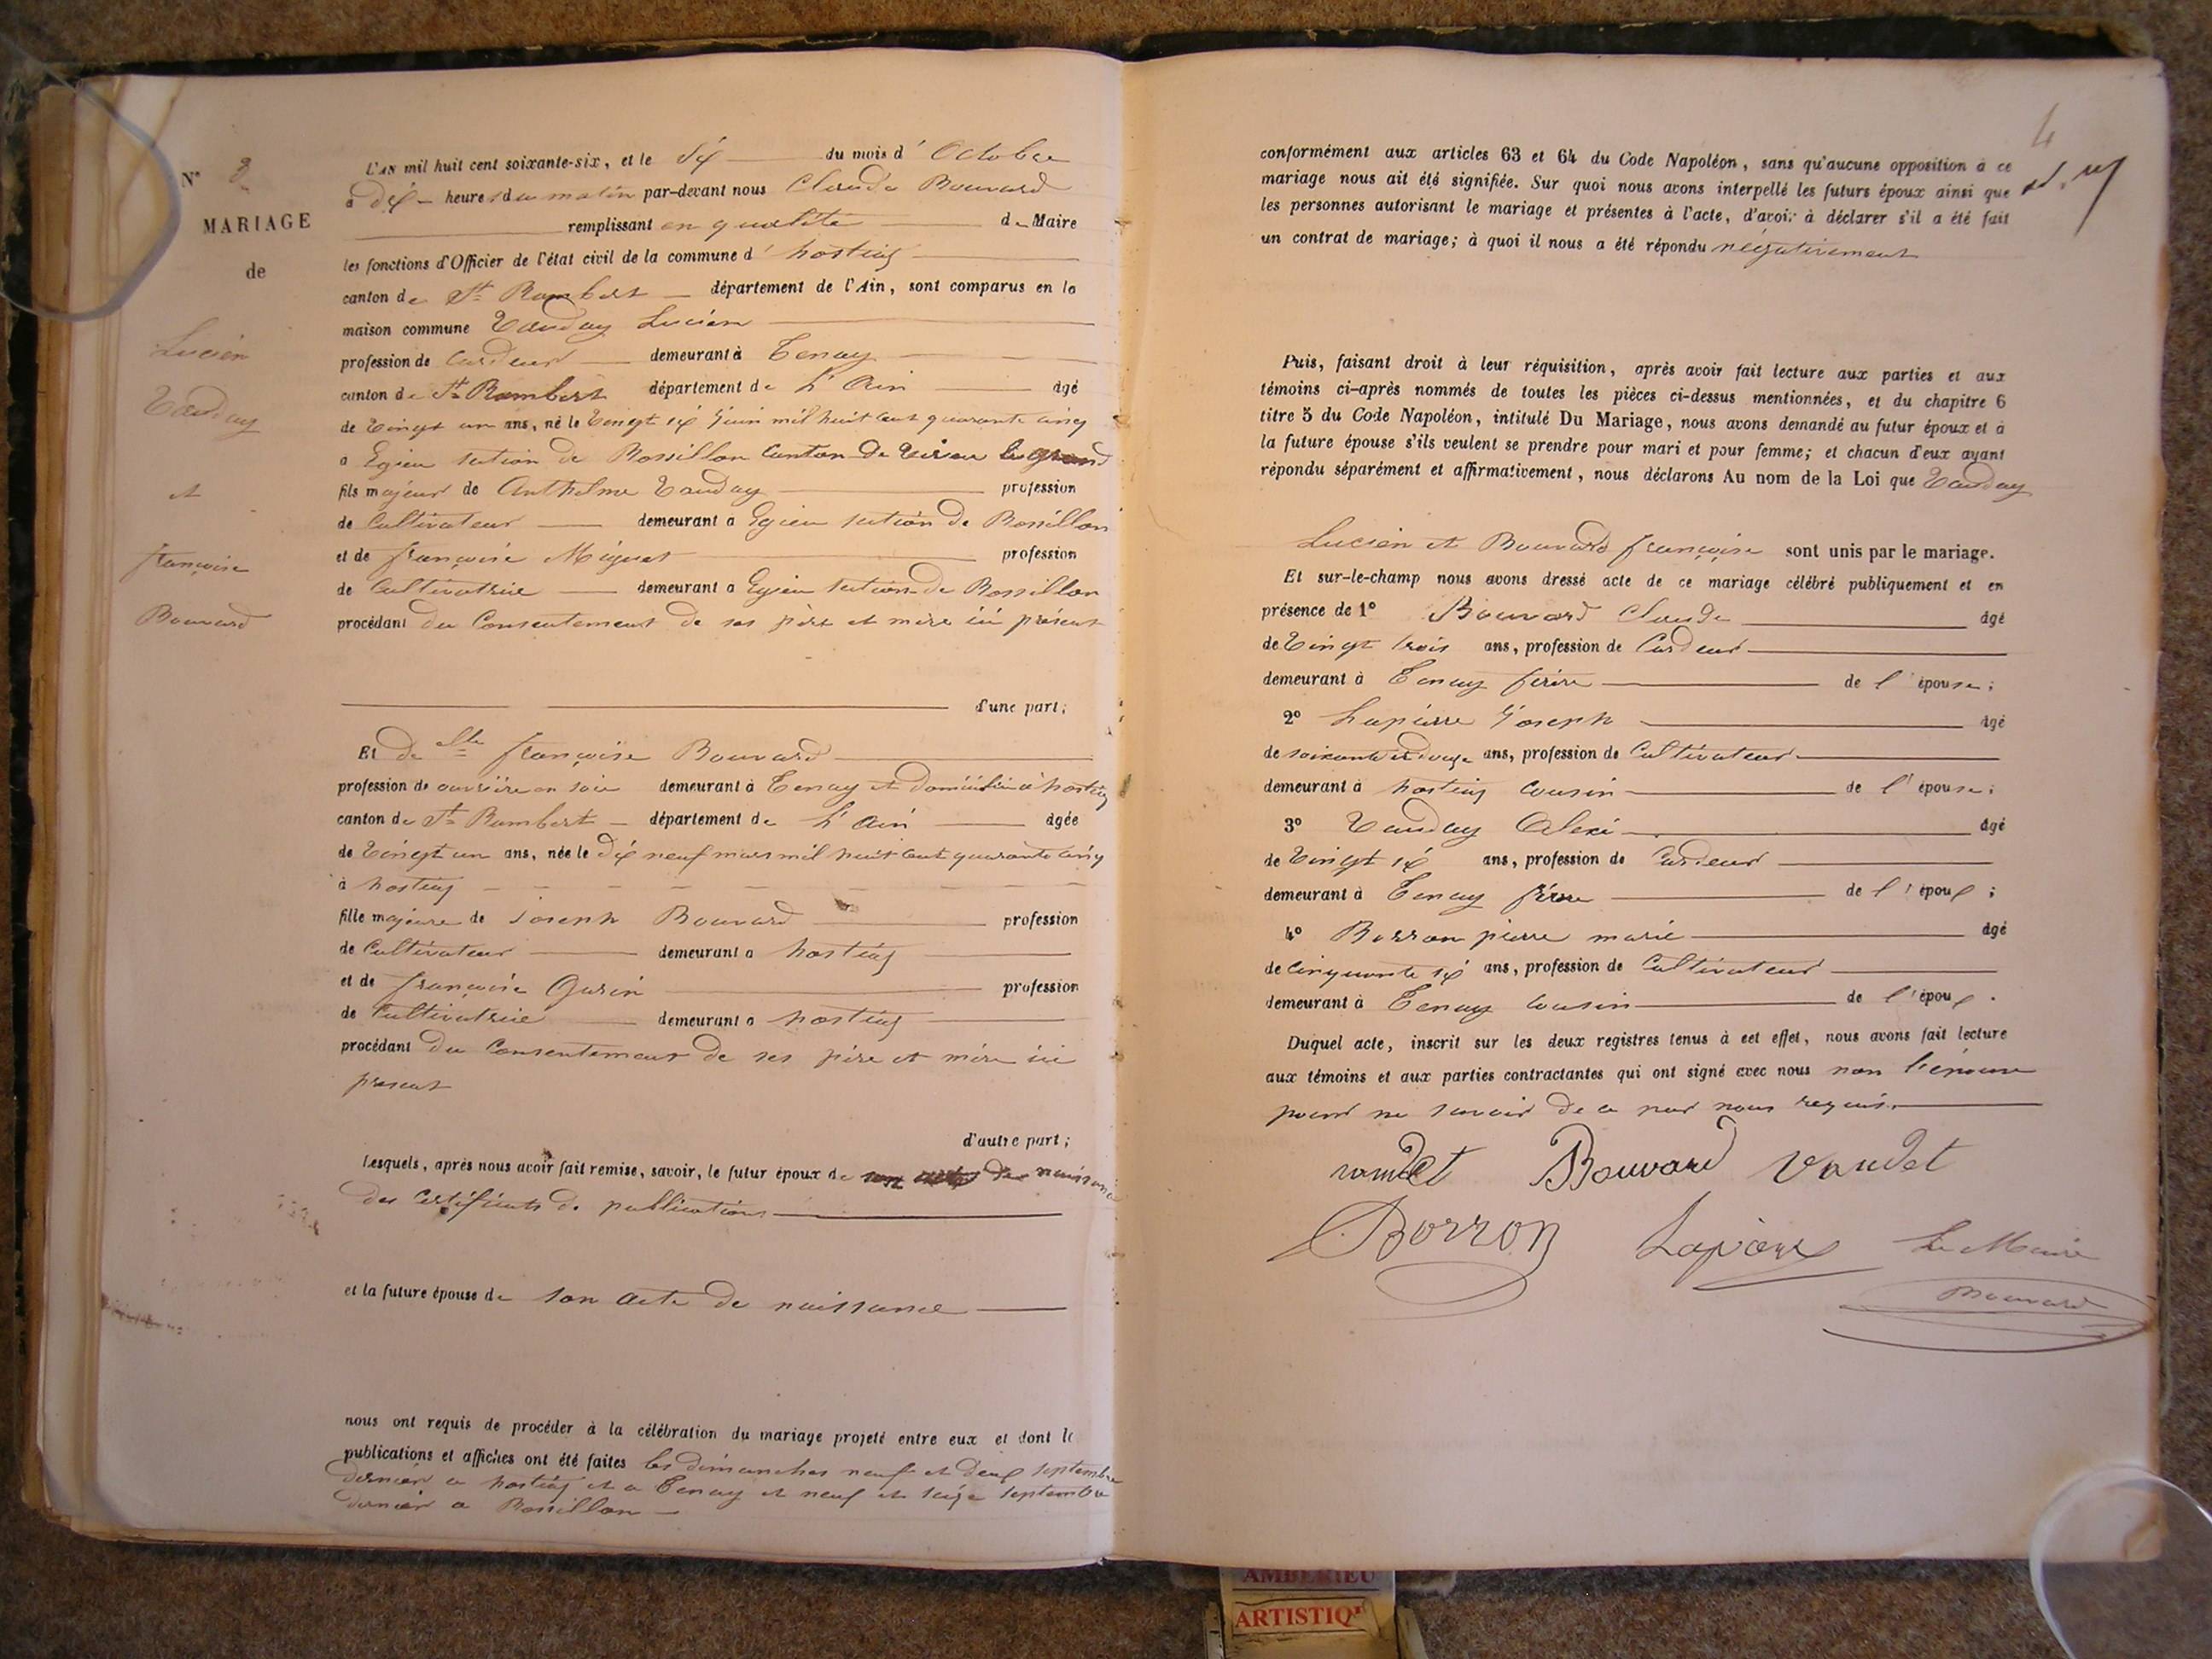 N° 3
MARIAGE
de
Lucien
Vauday
et
françoise
Bouvard
L'AN mil huit cent soixante-six, et le dix du mois d'Octobre
à dix heures du matin par-devant nous Claude Bouvard
remplissant en qualité de Maire
les fonctions d'Officier de l'état civil de la commune d'hostiaz
canton de St Rambert département de l'Ain, sont comparus en la
maison commune Vauday Lucien
profession de Cardeur demeurant à Tenay
canton de St Rambert département de L'Ain âgé
de Vingt un ans, né le Vingt six Juin mil huit cent quarante cinq
a Egieu section de Rossillon Canton de Virieu le grand
fils majeur de Anthelme Vauday profession
de Cultivateur demeurant a Egieu section de Rossillon
et de françoise Miguet profession
de Cultivatrice demeurant a Egieu section de Rossillon
procédant du Consentement de ses père et mère ici présent
d'une part;
Et de Dlle françoise Bouvard
profession de ouvrière en soie demeurant à Tenay et domiciliée à hostiaz
canton de St Rambert département de L'Ain âgée
de Vingt un ans, née le dix neuf mars mil huit cent quarante cinq
à hostiaz
fille majeure de Joseph Bouvard profession
de Cultivateur demeurant a hostiaz
et de françoise Garin profession
de Cultivatrice demeurant a hostiaz
procédant du Consentement de ses père et mère ici
présent
d'autre part;
Lesquels, après nous avoir fait remise, savoir, le futur époux de son acte de naissance
des Certificats de publications
et la future épouse de son acte de naissance
nous ont requis de procéder à la célébration du mariage projeté entre eux et dont le
publications et affiches ont été faites les dimanches neuf et deux septembre
dernier a hostiaz et a Tenay et neuf et seize septembre
dernier a Rossillon
4
conformément aux articles 63 et 64 du Code Napoléon, sans qu'aucune opposition à ce
mariage nous ait été signifiée. Sur quoi nous avons interpellé les futurs époux ainsi que
les personnes autorisant le mariage et présentes à l'acte, d'avoir à déclarer s'il a été fait
un contrat de mariage; à quoi il nous a été répondu négativement
Puis, faisant droit à leur réquisition, après avoir fait lecture aux parties et aux
témoins ci-après nommés de toutes les pièces ci-dessus mentionnées, et du chapitre 6
titre 5 du Code Napoléon, intitulé Du Mariage, nous avons demandé au futur époux et à
la future épouse s'ils veulent se prendre pour mari et pour femme; et chacun d'eux ayant
répondu séparément et affirmativement, nous déclarons Au nom de la Loi que Vauday
Lucien et Bouvard françoise sont unis par le mariage.
Et sur-le-champ nous avons dressé acte de ce mariage célébré publiquement et en
présence de 1° Bouvard Claude âgé
de Vingt trois ans, profession de Cardeur
demeurant à Tenay frère de l'épouse;
2° Lapierre Joseph âgé
de soixante et douze ans, profession de Cultivateur
demeurant à hostiaz cousin de l'épouse;
3° Vauday Alexi âgé
de Vingt six ans, profession de Cardeur
demeurant à Tenay frère de l'époux;
4° Borron pierre marie âgé
de Cinquante six ans, profession de Cultivateur
demeurant à Tenay cousin de l'époux.
Duquel acte, inscrit sur les deux registres tenus à cet effet, nous avons fait lecture
aux témoins et aux parties contractantes qui ont signé avec nous non l'épouse
pour ne savoir de ce par nous requis.
vaudet Bouvard Vaudet
Borron Lapierre Le Maire
Bouvard
AMBERIEU
ARTISTIQ